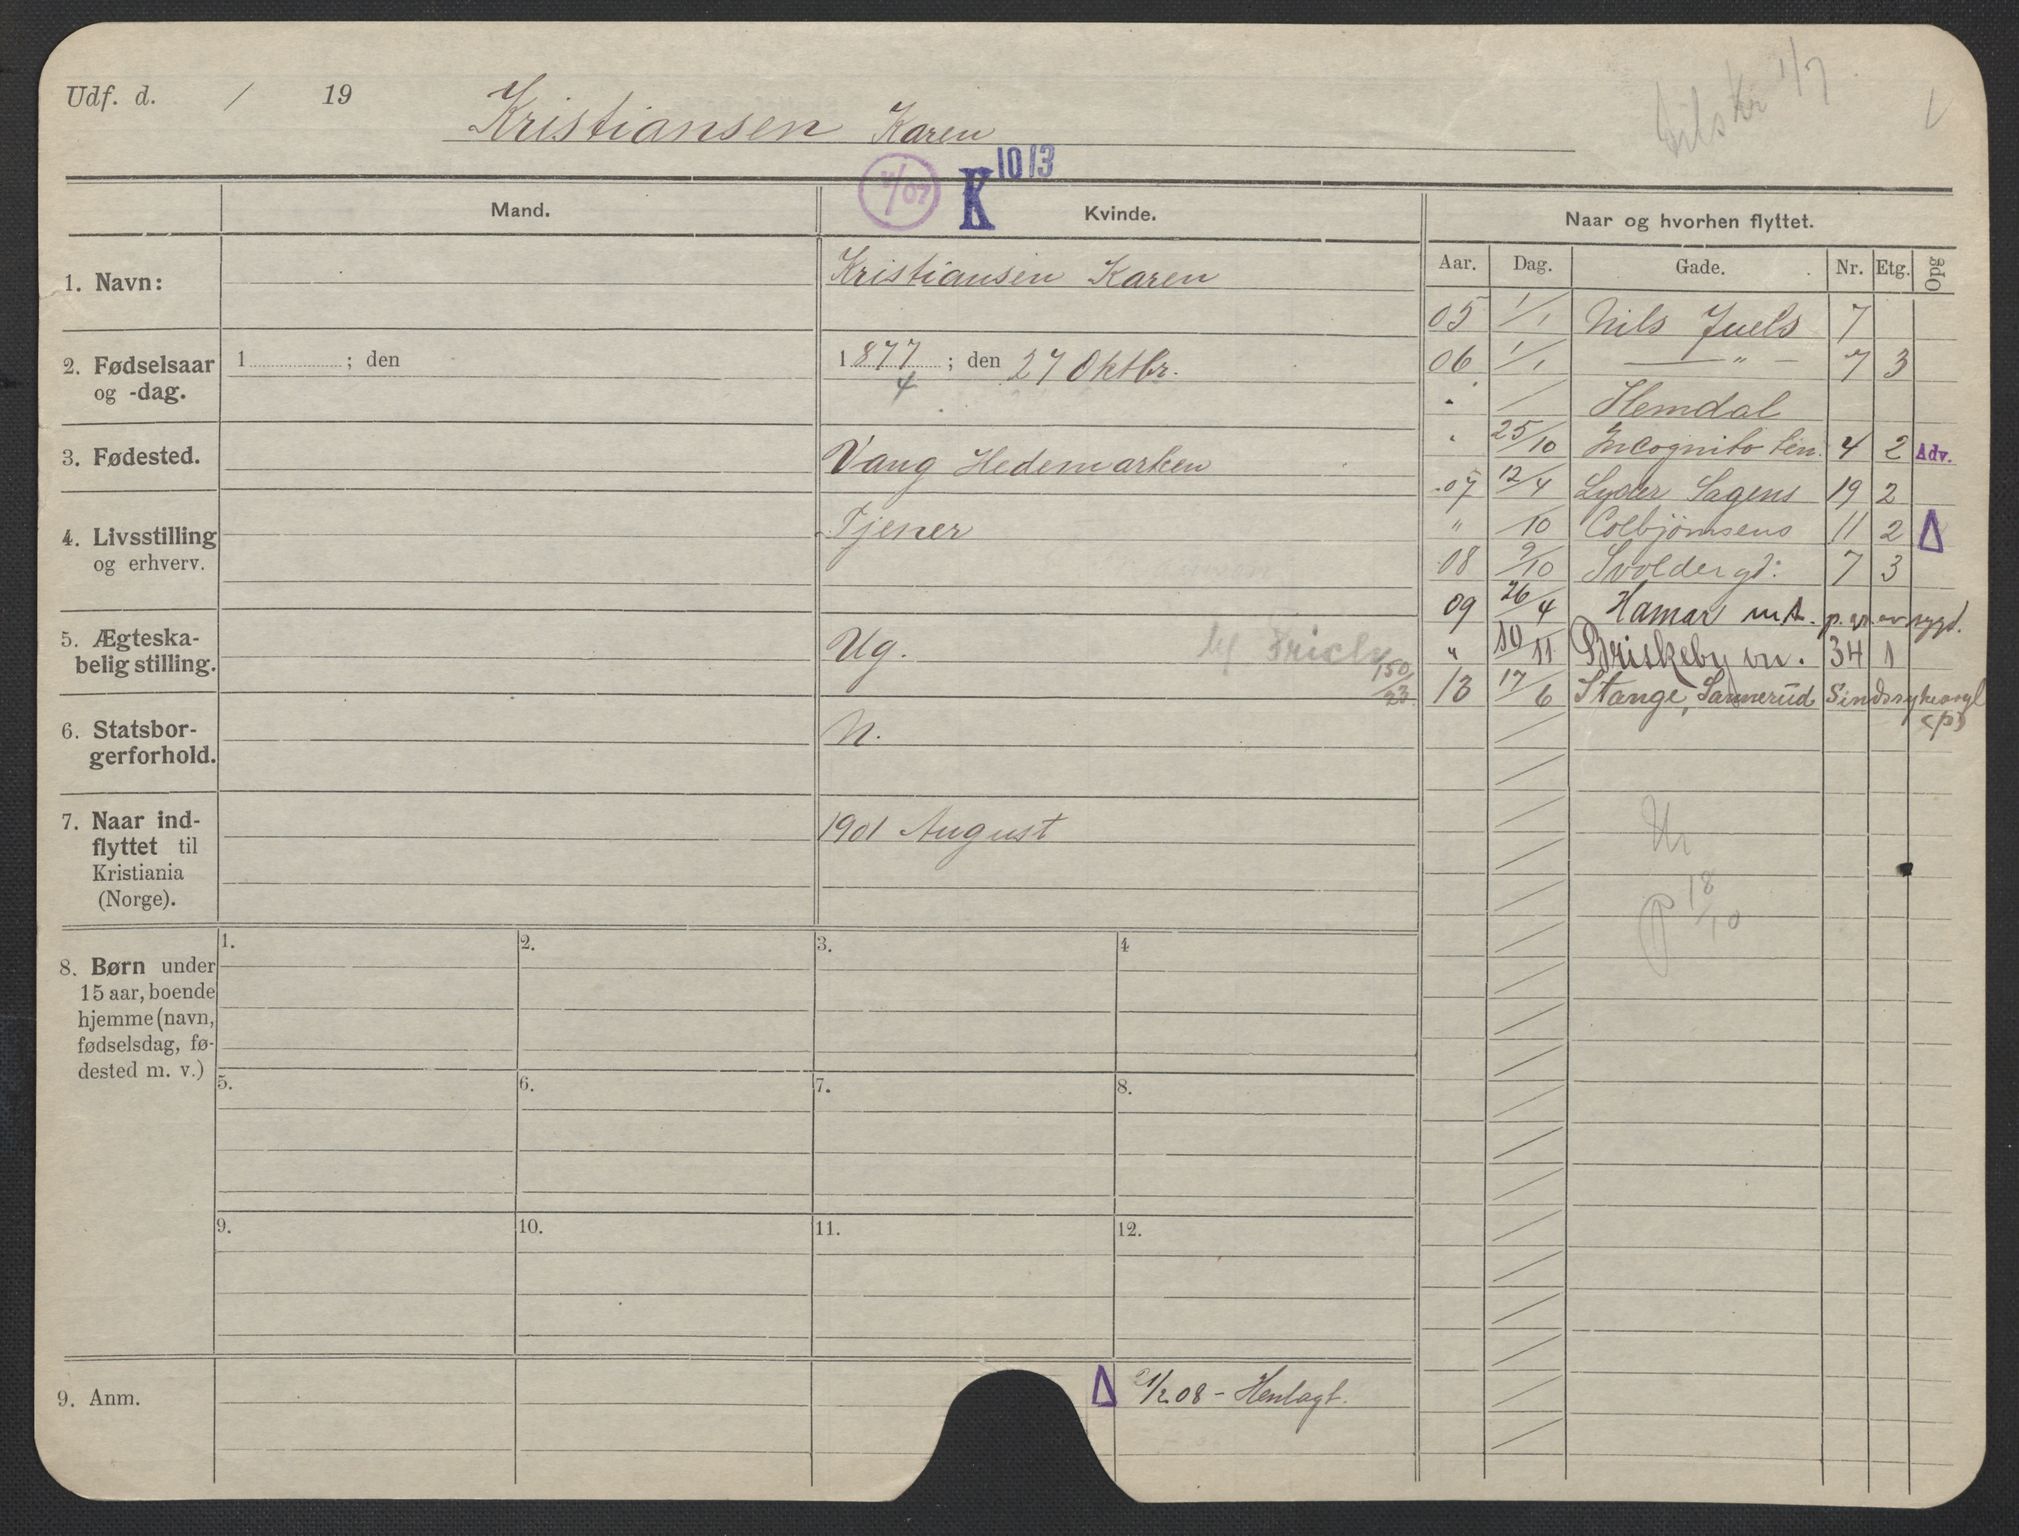 Udf. d. / 19
Kristiansen Karen
1/7
K 1013
Mand.
Kvinde.
Naar og hvorhen flyttet.
Aar. Dag. Gade. Nr. Etg. Opg
1. Navn:
Kristiansen Karen
2. Fødselsaar og -dag.
1 ; den
1877 ; den 27 Oktbr.
4
3. Fødested.
Vang Hedemarken
4. Livsstilling og erhverv.
Tjener
5. Ægteskabelig stilling.
Ug.
150/23
6. Statsborgerforhold.
N.
7. Naar indflyttet til Kristiania (Norge).
1901 August
05 1/1 Nils Juels 7
06 1/1 — " — 7 3
Hemdal
25/10 Incognito 4 2 Adv.
07 12/4 Lyder Sagens 19 2
" /10 Colbjørnsens 11 2 Δ
08 9/10 Svolder gd. 7 3
09 26/4 Hamar
" 10/11 Briskeby vn. 34 1
13 17/6 Stange, Sannerud Sindssykeasyl (p)
18/10
8. Børn under
15 aar, boende
hjemme (navn,
fødselsdag, fø-
dested m. v.)
1. 2. 3. 4
5. 6. 7. 8.
9. 10. 11. 12.
9. Anm.
Δ 21/2 08 - Henlagt.